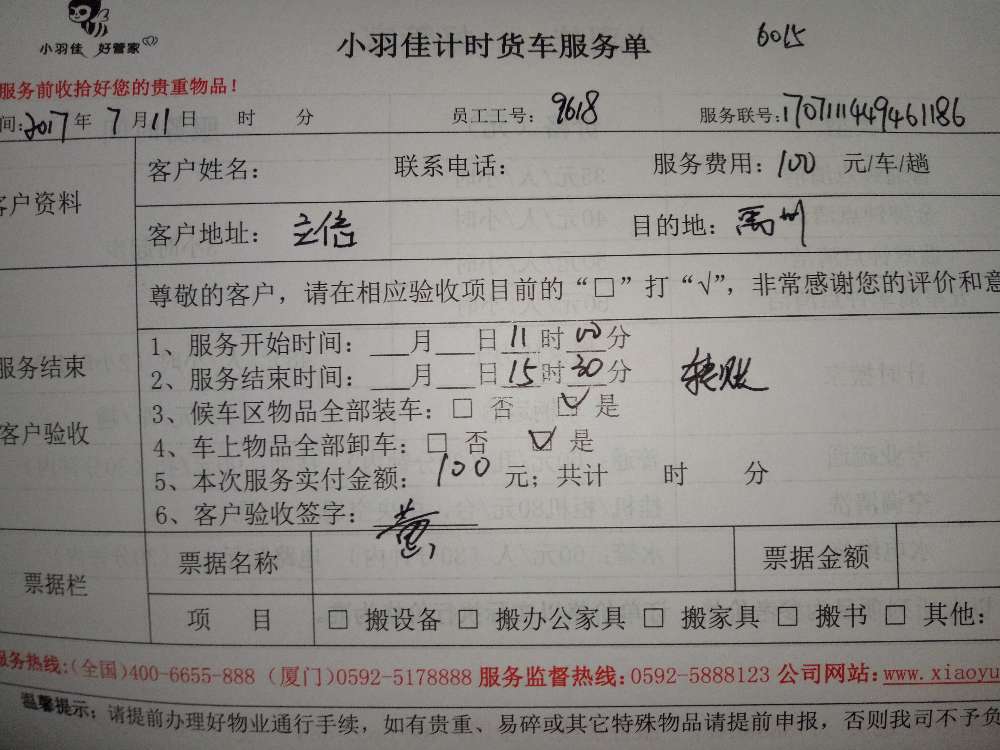 小羽佳 好管家
小羽佳计时货车服务单 6015
服务前收拾好您的贵重物品！
间：2017年 7月11日 时 分 员工工号：9618 服务联号：1707111449461186
客户资料
客户姓名： 联系电话： 服务费用：100 元/车/趟
客户地址：立信 目的地：禹州
尊敬的客户，请在相应验收项目前的“□”打“√”，非常感谢您的评价和意
服务结束
客户验收
1、服务开始时间：___月___日11时00分
2、服务结束时间：___月___日15时30分 转账
3、候车区物品全部装车：□ 否 ☑ 是
4、车上物品全部卸车：□ 否 ☑ 是
5、本次服务实付金额：100 元；共计 时 分
6、客户验收签字：黄
票据栏
票据名称 票据金额
项 目 □ 搬设备 □ 搬办公家具 □ 搬家具 □ 搬书 □ 其他：
服务热线:(全国)400-6655-888 (厦门)0592-5178888 服务监督热线：0592-5888123 公司网站：www.xiaoyu
温馨提示：请提前办理好物业通行手续，如有贵重、易碎或其它特殊物品请提前申报，否则我司不予负